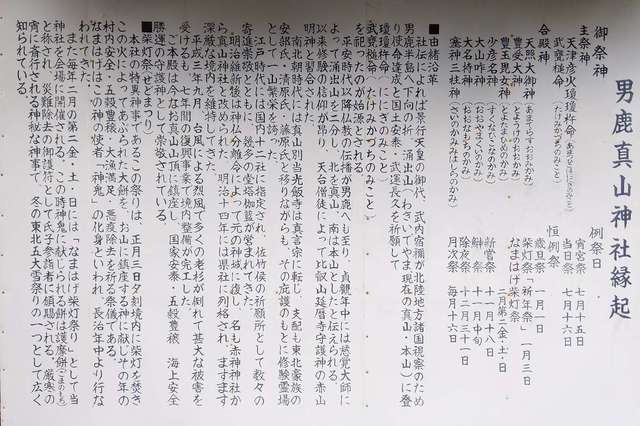 男鹿真山神社縁起
御祭神
主祭神
天津彦火瓊瓊杵命(あまつひこほのににぎのみこと)
武甕槌命(たけみかづちのみこと)
合殿神
天照大御神(あまてらすおおみかみ)
豊受大神(とようけのおおかみ)
豊玉毘女神(とよたまひめのかみ)
少彦名神(すくなひこなのかみ)
大山咋神(おおやまくいのかみ)
大名持神(おおなもちのかみ)
塞神三柱神(さいのかみみはしらのかみ)
例祭日
宵宮祭 七月十五日
当日祭 七月十六日
恒例祭
歳旦祭 一月一日
柴灯祭「祈年祭」 一月三日
なまはげ柴灯祭 二月第二金・土・日
新嘗祭 十一月
除夜祭 十二月三十一日
月次祭 毎月十六日
■由緒沿革
社伝によれば景行天皇の御代、武内宿禰が北陸地方諸国視察のため
男鹿半島へ下向の折、涌出山(わきいでやま 現在の真山・本山)に登
り使命達成と国土安泰・武運長久を祈願して
瓊瓊杵命 ににぎのみこと
武甕槌命 たけみかづちのみこと
を祀ったのが始源とされる。
平安時代以降仏教の伝播が男鹿へも至り、貞観年中には慈覚大師に
よって涌出山を二分し、北を真山、南は本山としたと伝えられる。
以来修験の信仰が昂り、天台僧徒によって比叡山延暦寺守護神の赤山
明神と習合された。
南北朝時代には真山別当光飯寺は真言宗に転じ、支配も東北豪族の
安部氏・清原氏・藤原氏と移りながらも、その庇護のもとに修験霊場
として一山繁栄を誇った。
江戸時代には国内十二社に指定され、佐竹侯の祈願所として数々の
寄進崇敬とともに、幾多の堂塔伽藍が営まれてきた。
明治維新後は神仏分離令によって元の神域に復し、名も赤神神社か
ら真山神社と改められた。明治十四年には県社に列格され、ますます
深厳な境内を維持してきた。
平成三年、台風による烈風で多くの老杉が倒れて甚大な被害を
受けるも、七年間の復興事業で境内整備が完工した。
ご本殿は今なお真山山頂に鎮座し、国家安泰、五穀豊穣、海上安全
勝運の守護神として崇敬されている。
■柴灯祭(せどまつり)
本社の特異神事であるこの祭りは、正月三日夕刻境内に柴灯を焚き
この火によってあぶられた大餅を、お山に鎮座する神に献じその年の
村内安全・五穀豊穣・大漁満足・悪疫除去を祈る祭儀である。
なまはげはこの神の使者「神鬼」の化身といわれ、長治年中より行な
われている。
また毎年二月の第二金・土・日には「なまはげ柴灯祭り」として当
神社を会場に開催される。この時神鬼に献じられる餅は護摩餅(ごまのもち)
と称され、災難除去の御護符として氏子参詣者に頒賜される。厳寒の
宵に斎行される神秘な神事で、冬の東北五大雪祭りの一つとして広く
知られている。